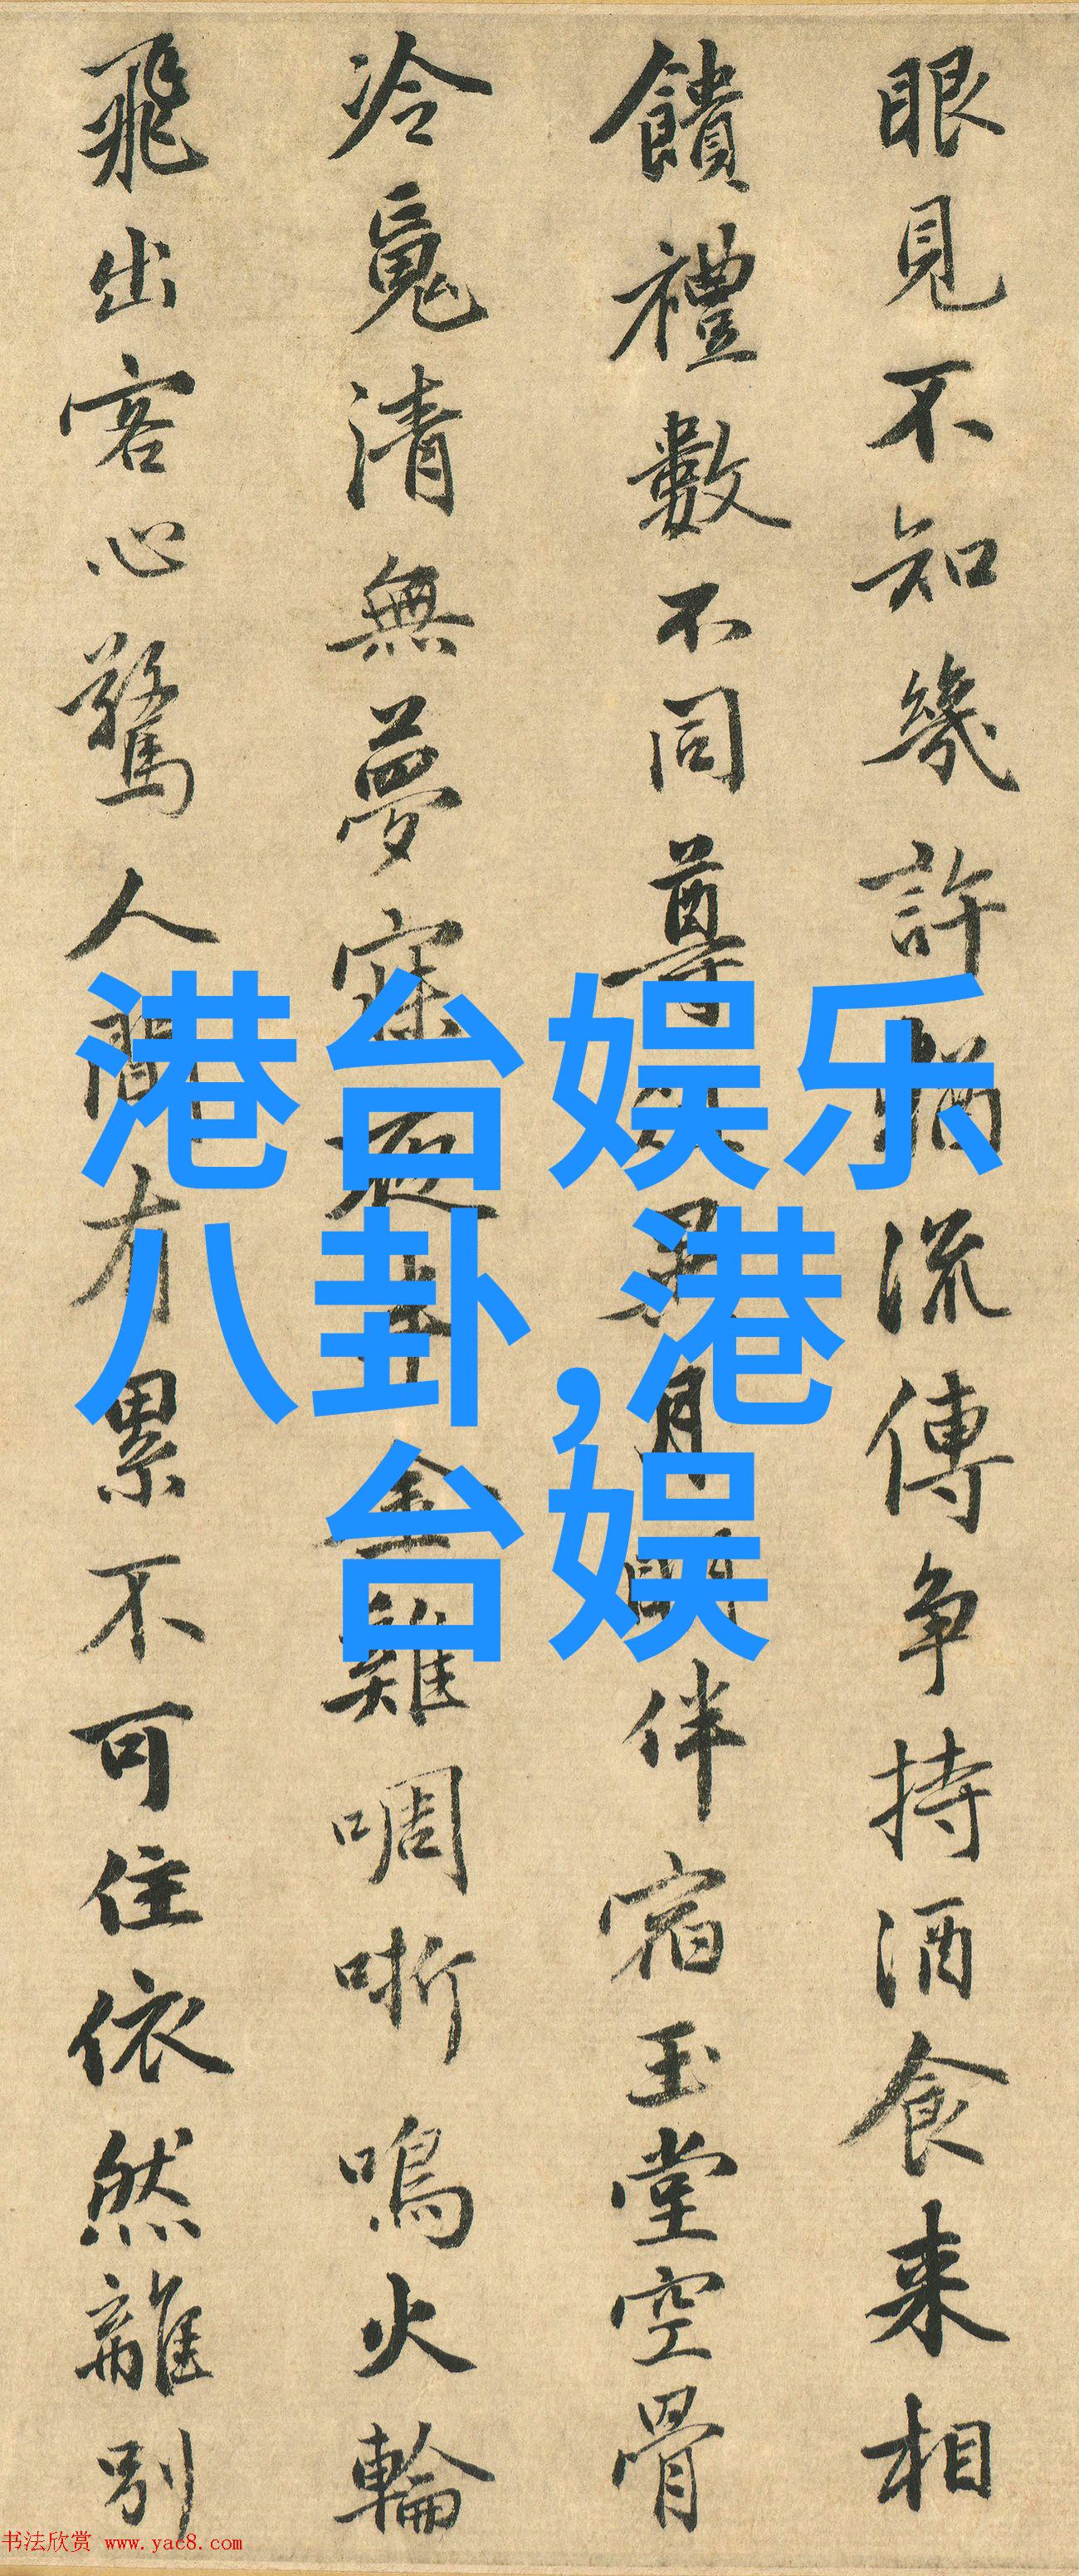 眼見不知幾許猶流傳争持酒食来相
饋禮數不同尊
月
伴宿玉堂空骨
冷魂清無夢寐
金雞啁哳鳴火輪
飛出客心驚人間有累不可住依然離別
港台娱乐
八卦,港
台娱
书法欣赏 www.yac8.com